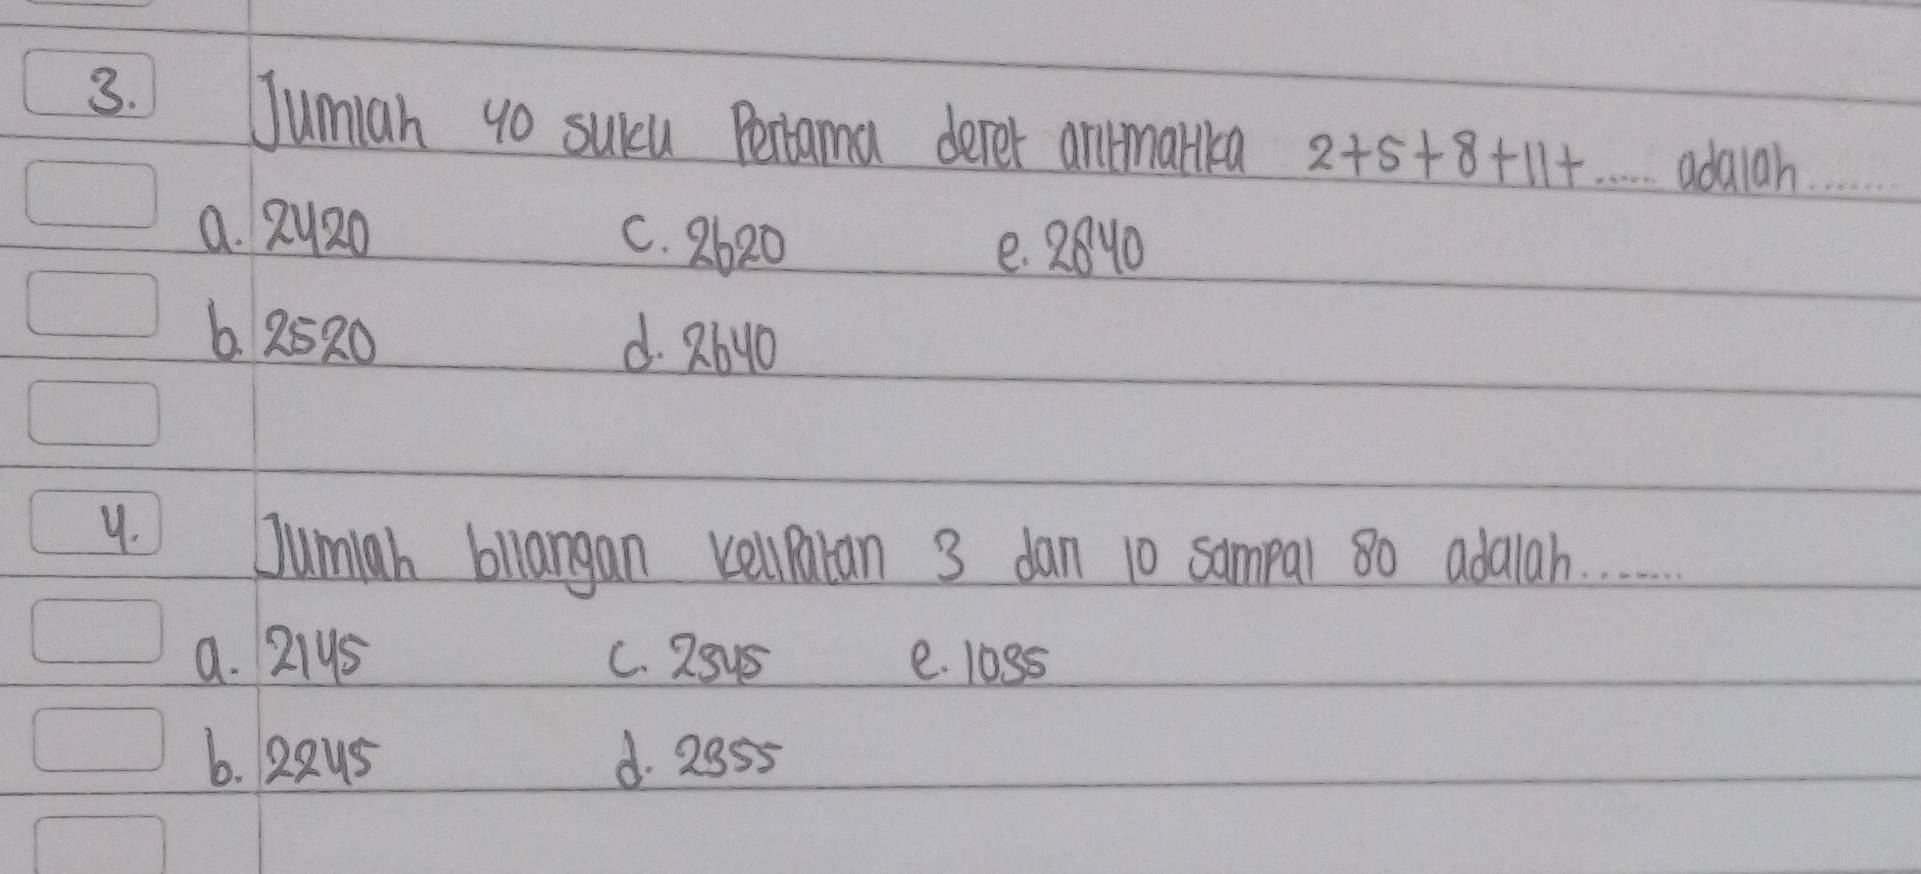 3. Jumlah 40 suku Pertama deret aritmatika 2+5+8+11+..... adalah.......
a. 2420 c. 2620 e. 2840
b. 2520 d. 2640
4. Jumlah bilangan kelipatan 3 dan 10 sampai 80 adalah.......
a. 2145 c. 2345 e. 1035
b. 2245 d. 2355